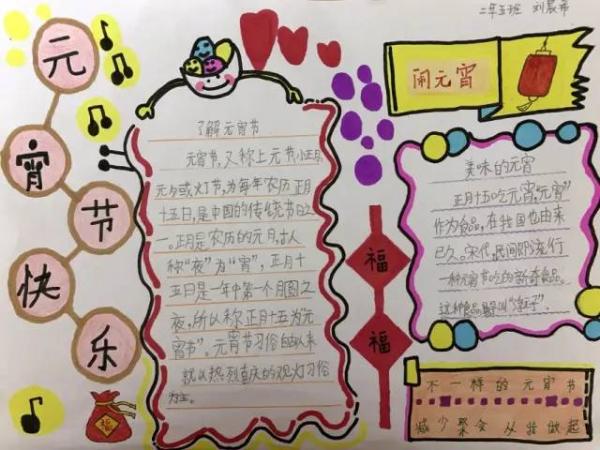 二年五班
元宵节快乐
了解元宵节
元宵节,又称上元节小正月
元夕或灯节,为每年农历正月
十五日,是中国的传统节日之
一。正月是农历的元月,古人
称“夜”为“宵”,正月十
五日是一年中第一个月圆之
夜,所以称正月十五为“元
宵节”。元宵节习俗自古以来
就以热烈喜庆的观灯习俗
为主。
闹元宵
美味的元宵
正月十五吃元宵,“元宵”
作为食品,在我国也由来
已久。宋代,民间即流行
一种元宵节吃的新奇食品。
这种食品
福
福
福
不一样的元宵节
减少聚会 从我做起